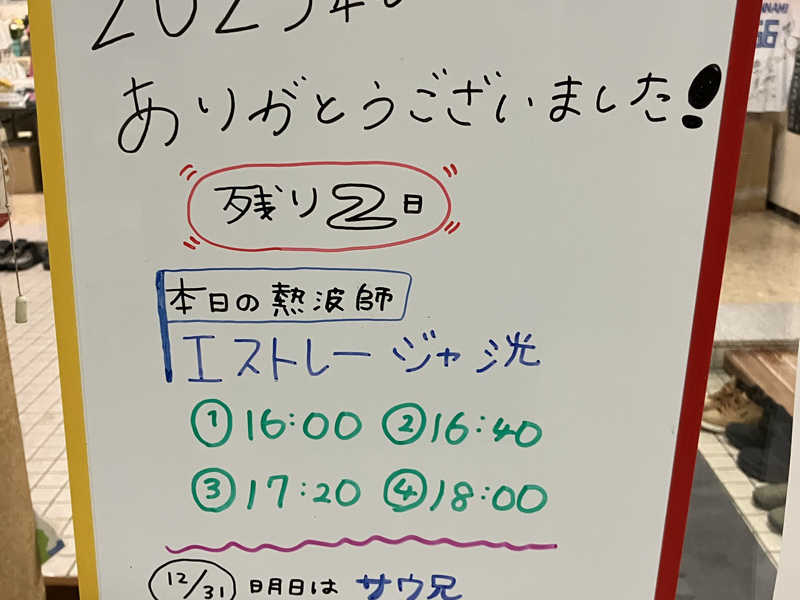 2025年
ありがとうございました!
残り2日
本日の熱波師
エストレージャ洸
①16:00 ②16:40
③17:20 ④18:00
12/31 日月日は サウ兄